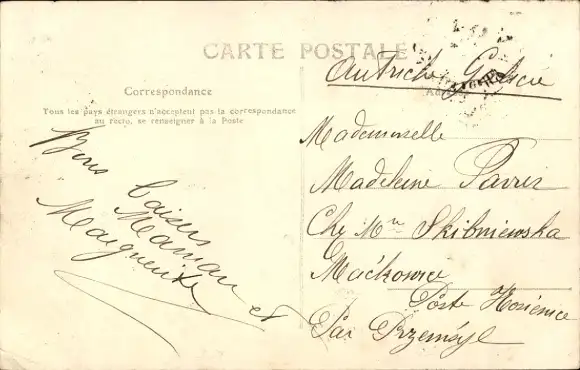 CARTE POSTALE
Autriche Galicie
Correspondance
Tous les pays étrangers n'acceptent pas la correspondance
au recto, se renseigner à la Poste
Bons baisers
Maman et
Marguerite
Mademoiselle
Madeleine
Chez Mme Skibniewska
Maćkowice
Poste Kosienice
Par Przemésyl